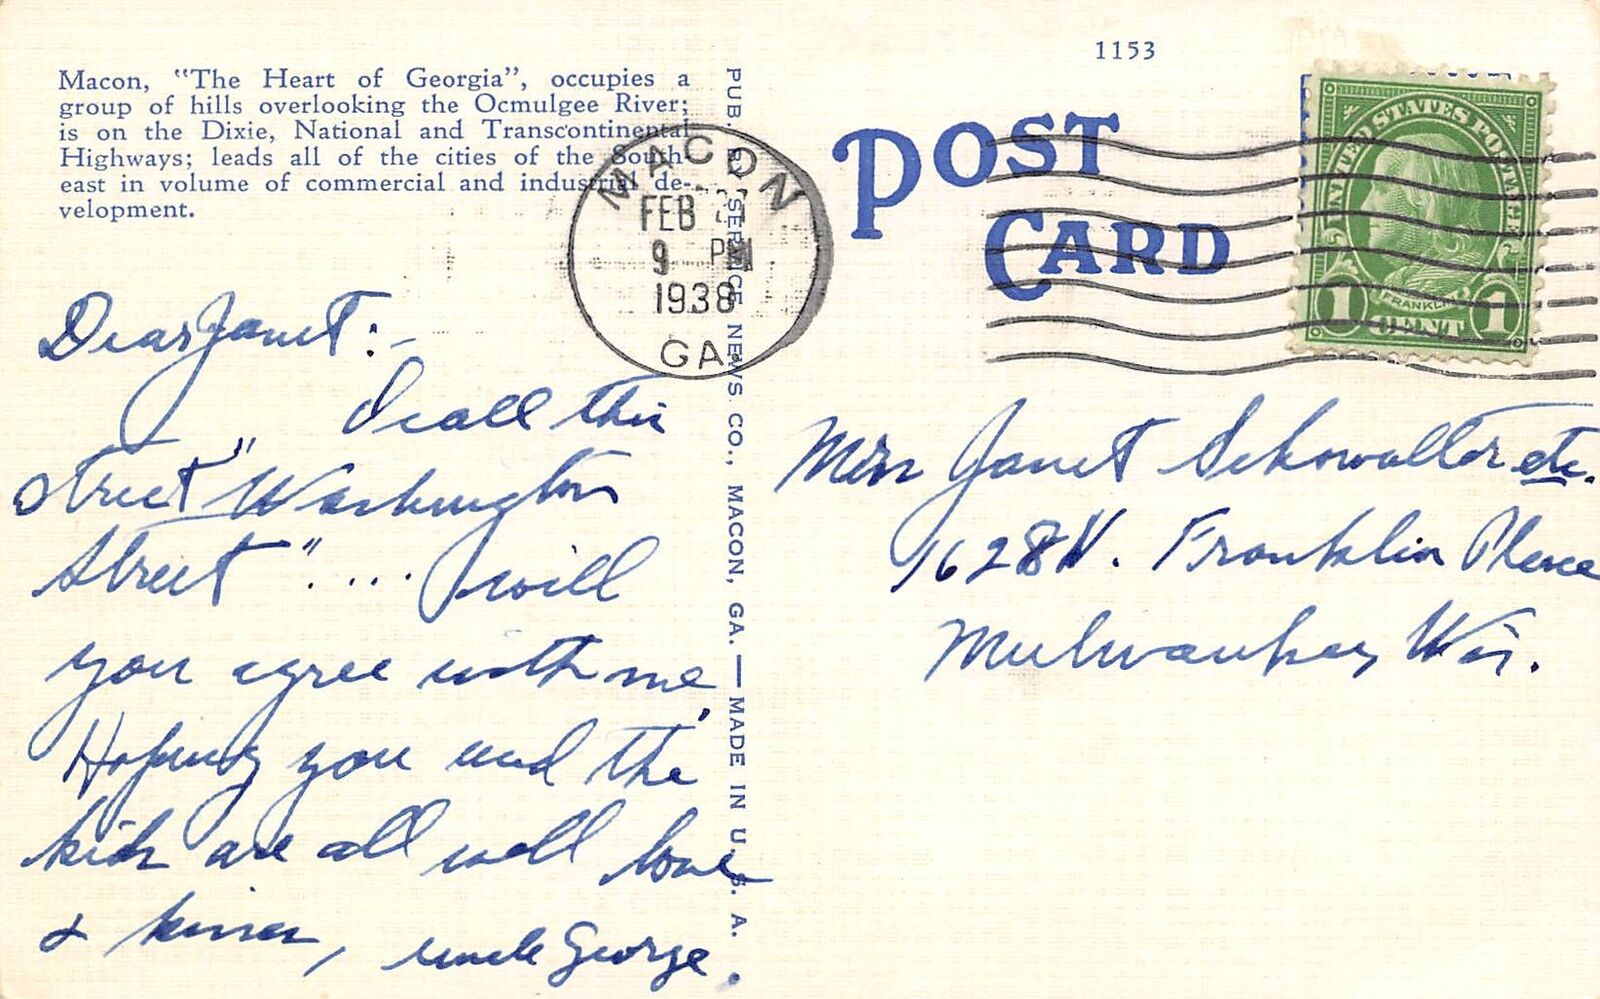 1153
Macon, "The Heart of Georgia", occupies a
group of hills overlooking the Ocmulgee River;
is on the Dixie, National and Transcontinental
Highways; leads all of the cities of the South-
east in volume of commercial and industrial de-
velopment.
POST
CARD
MACON
FEB
9 PM
1938
GA.
UNITED STATES POSTAGE
FRANKLIN
1 CENT 1
PUB. BY SERVICE NEWS CO., MACON, GA. — MADE IN U. S. A.
Dear Janet:-
I call this
street "Washington
Street".... will
you agree with me,
Hoping you and the
kids are all well love
& kisses, uncle George.
Miss Janet Schowalter etc.
1628 N. Franklin Place
Milwaukee, Wis.